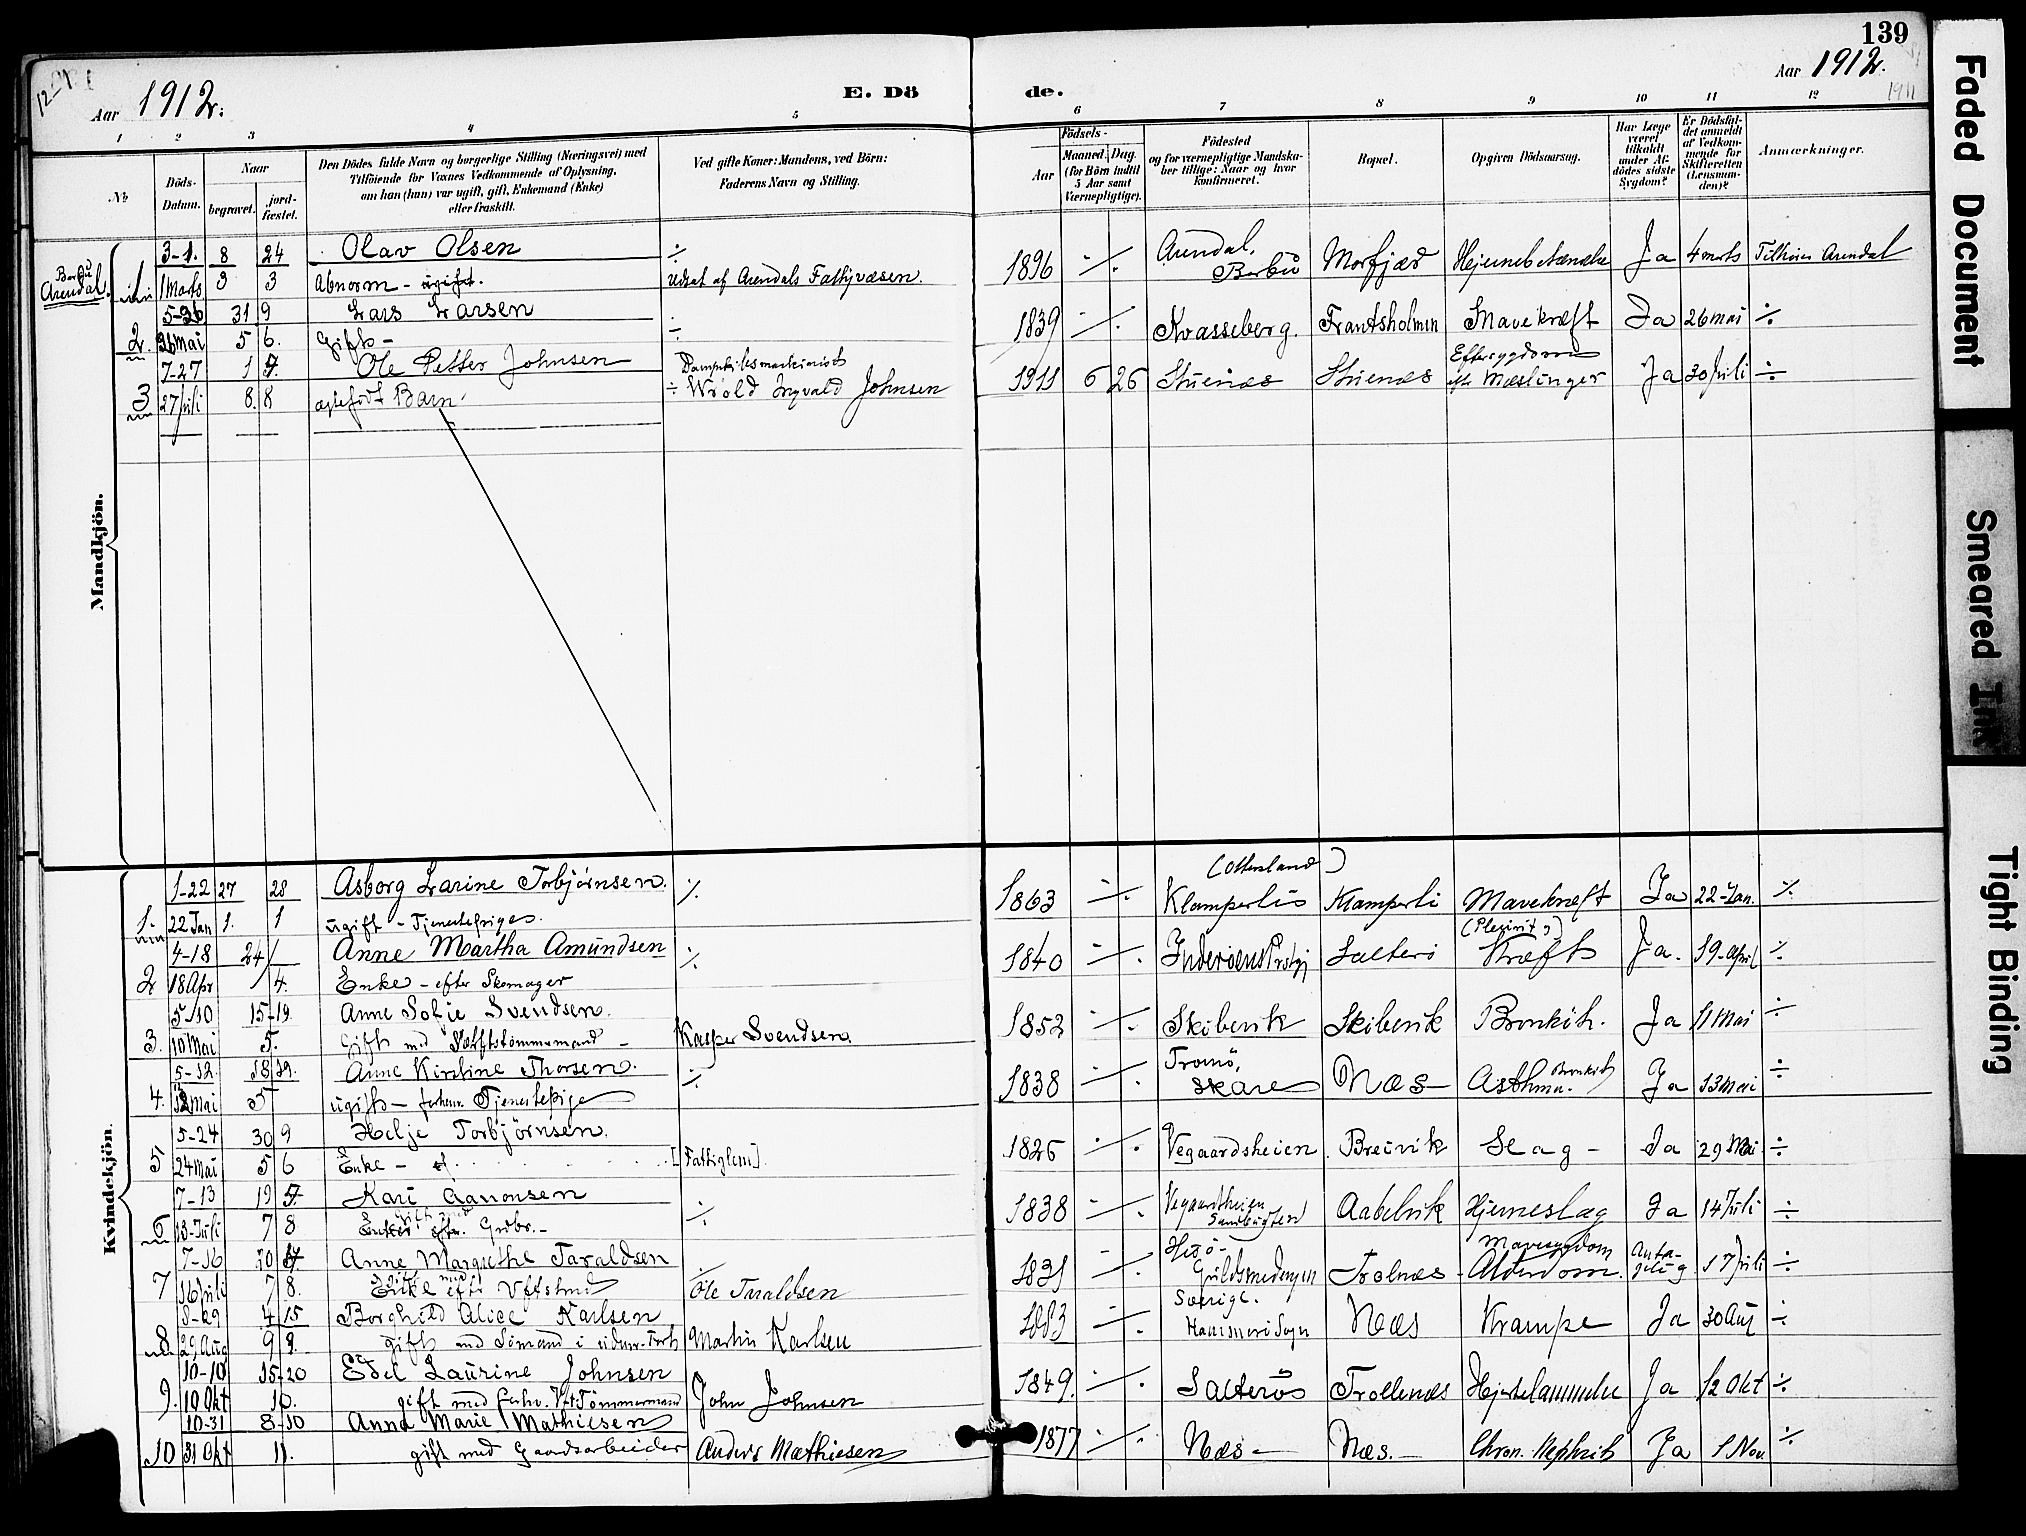 139
Aar 1912.
E. Dö
de.
Aar 1912.
1911
1 2 3 4 5 6 7 8 9 10 11 12
No
Döds-
Datum.
Naar
begravet.
jord-
fæstet.
Den Dödes fulde Navn og borgerlige Stilling (Næringsvei) med
Tilföiende for Voxnes Vedkommende af Oplysning,
om han (hun) var ugift, gift, Enkemand (Enke)
eller fraskilt.
Ved gifte Koner: Mandens, ved Börn:
Faderens Navn og Stilling.
Födsels-
Aar
Maaned. Dag.
(for Börn indtil
5 Aar samt
Værnepligtige).
Födested
og for værnepligtige Mandska-
ber tillige: Naar og hvor
konfirmeret.
Bopæl.
Opgiven Dödsaarsag.
Har Læge
været
tilkaldt
under Af-
dödes sidste
Sygdom?
Er Dödsfal-
det anmeldt
af Vedkom-
mende for
Skifteretten
(Lensman-
den)?
Anmærkninger.
Mandkjön.
Barbu
Arendal.
3-1. 8 24 Olav Olsen ÷ 1896 ÷ Arendal, Barbu Morfjær Ja 4 marts Tilhører Arendal
1 1 Marts 3 3 Abnorm - ugift. udsat af Arendals Fattigvæsen.
5-26 31 9 Lars Larsen ÷ 1839 ÷ Kvasseberg. Frantsholmen Mavekræft Ja 26 mai ÷
2. 26 Mai 5 6. Gift -
7-27 1 7. Ole Petter Johnsen 1911 6 26 Stuenæs Stuenæs Eftersygdom efter Mæslinger Ja 30 Juli ÷
3 27 Juli 8. 8 ægtefødt Barn ÷ Ingvald Johnsen
Kvindekjön.
1-22 27 28 Asborg Larine Torbjørnsen. ÷ 1863 ÷ Klamperlis Klamperli Mavekræft Ja 22-Jan. ÷
1. 22 Jan 1. 1 ugift - Tjenestepige.
4-18 24 Anne Martha Amundsen ÷ 1840 ÷ Salterø Kræft Ja. 19-April ÷
2 18 Apr 4. Enke - efter Skomager
5-10 15-19. Anne Sofie Svendsen. 1852 ÷ Skibevik Skibevik Bronkit. Ja 11 Mai ÷
3. 10 Mai 5. Gift med Kasper Svendsen.
5-12. 18 19. Anne Kirstine Thorsen. ÷ 1838 ÷ Tromø, Skare Næs Asthma. Bronkit Ja 13 Mai ÷
4. 12 Mai 5 ugift - forhenv. Tjenestepige
5-24 30 9 Helje Torbjørnsen. 1826 ÷ Vegaardsheien Breivik Slag - Ja 29 Mai ÷
5 24 Mai 5 6 Enke - ef. [Fattiglem].
7-13 19 7. Kari Aanonsen ÷ 1838 ÷ Vegaardsheien Aabelvik Hjerneslag Ja 14 Juli ÷
6 13-Juli 7 8 Gift med
7-16 20 Anne Margrethe Taraldsen ÷ 1831 ÷ Hisø - Trolnæs Mavesygdom Alderdom. Antagelig 17 Juli ÷
7 16 Juli 7 8. Gift med Ole Taraldsen
8-29 4 15 Borghild Alice Karlsen 1883 ÷ Sverige. Næs Krampe Ja 30 Aug ÷
8 29 Aug 9 9. gift med Sømand i Martin Karlsen
10-10 15-20 Edel Laurine Johnsen 1849. ÷ Salterøs Trollenæs Hjertelammelse Ja 12 Okt ÷
9. 10 Okt 10. gift med forhv. Tømmermand John Johnsen
10-31 8-10 Anna Marie Mathiesen 1877 ÷ Næs - Næs. - Chron. Nephrit Ja 1 Nov. ÷
10 31 Okt 11. gift med Gaardsarbeider Anders Mathiesen
Faded Document
Smeared Ink
Tight Binding